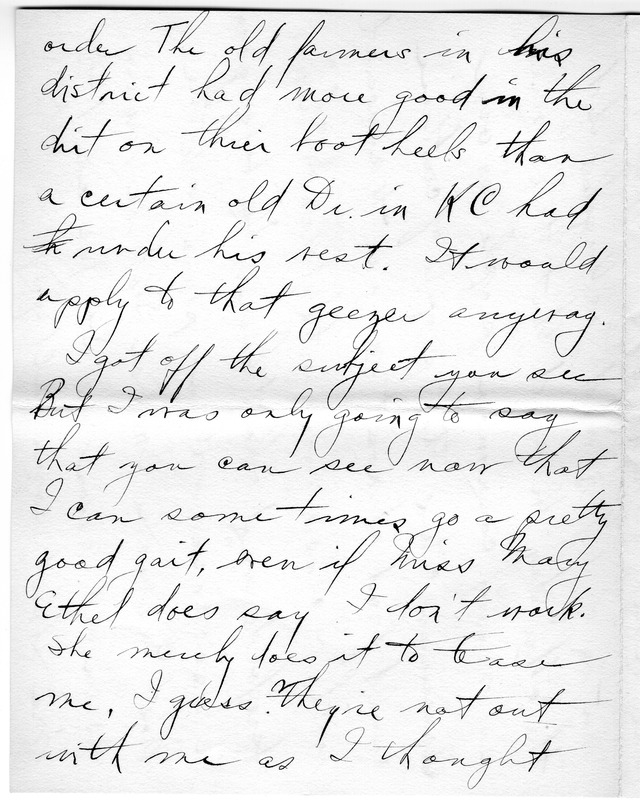 order The old farmers in his
district had more good in the
dirt on thier boot heels than
a certain old Dr. in KC had
under his vest. It would
apply to that geezer anyway.
I got off the subject you see
But I was only going to say
that you can see now that
I can sometimes go a pretty
good gait, even if Miss Mary
Ethel does say I don't work.
She merely does it to tease
me, I guess. They're not out
with me as I thought